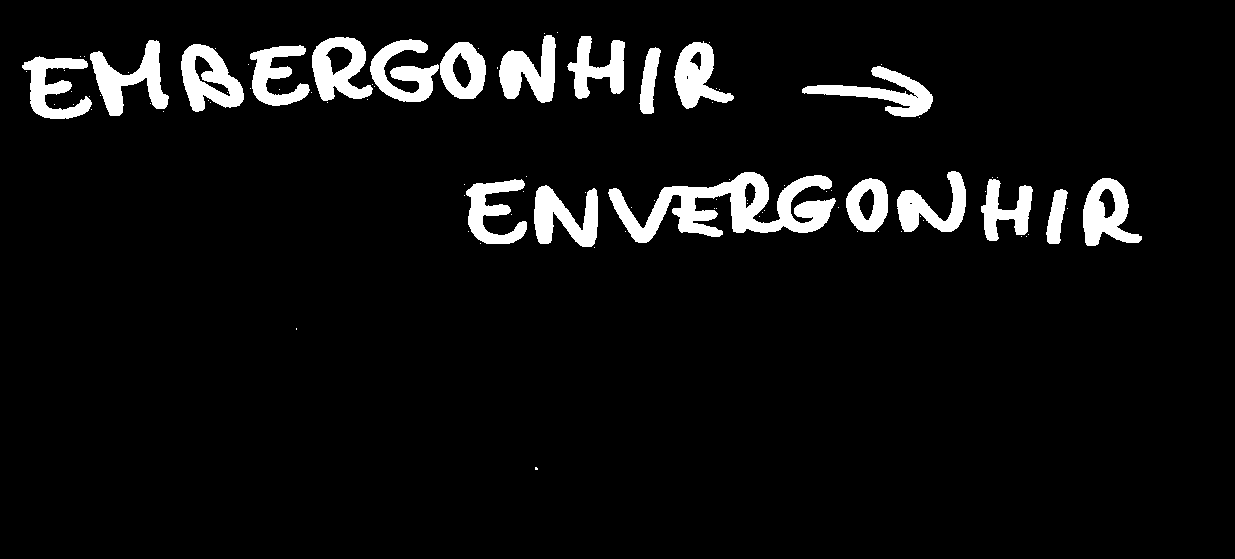 EMBERGONHIR →
ENVERGONHIR